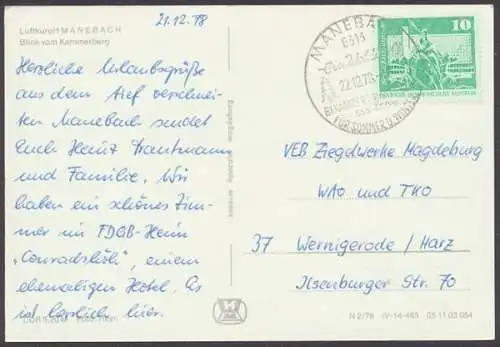 Luftkurort MANEBACH
Blick vom Kammerberg
21.12.78
Herzliche Urlaubsgrüße
aus dem tief verschnei-
ten Manebach sendet
Euch Heinz Trautmann
und Familie. Wir
haben ein schönes Zim-
mer im FDGB-Heim
"Conradshöh", einem
ehemaligen Hotel. Es
ist herrlich hier.
MANEBACH
22.12.78
FÜR SOMMER U. WINTER
10
VEB Ziegelwerke Magdeburg
WAO und TKO
37 Wernigerode / Harz
Ilsenburger Str. 70
N 2/78 IV-14-483 05 11 03 054